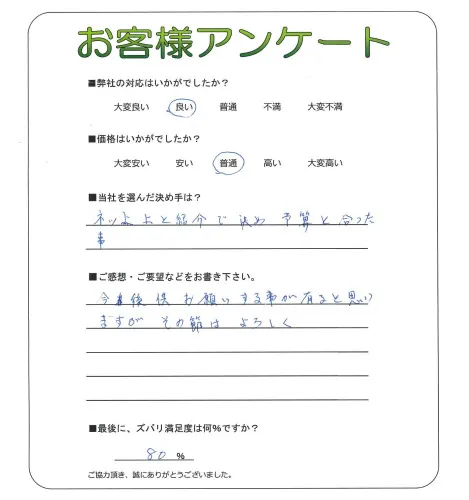 お客様アンケート
■弊社の対応はいかがでしたか？
大変良い 良い 普通 不満 大変不満
■価格はいかがでしたか？
大変安い 安い 普通 高い 大変高い
■当社を選んだ決め手は？
紹介で 決め 予算と合った
事
■ご感想・ご要望などをお書き下さい。
今後 お願いする事が有ると思い
ますが その節は よろしく
■最後に、ズバリ満足度は何％ですか？
80 ％
ご協力頂き、誠にありがとうございました。